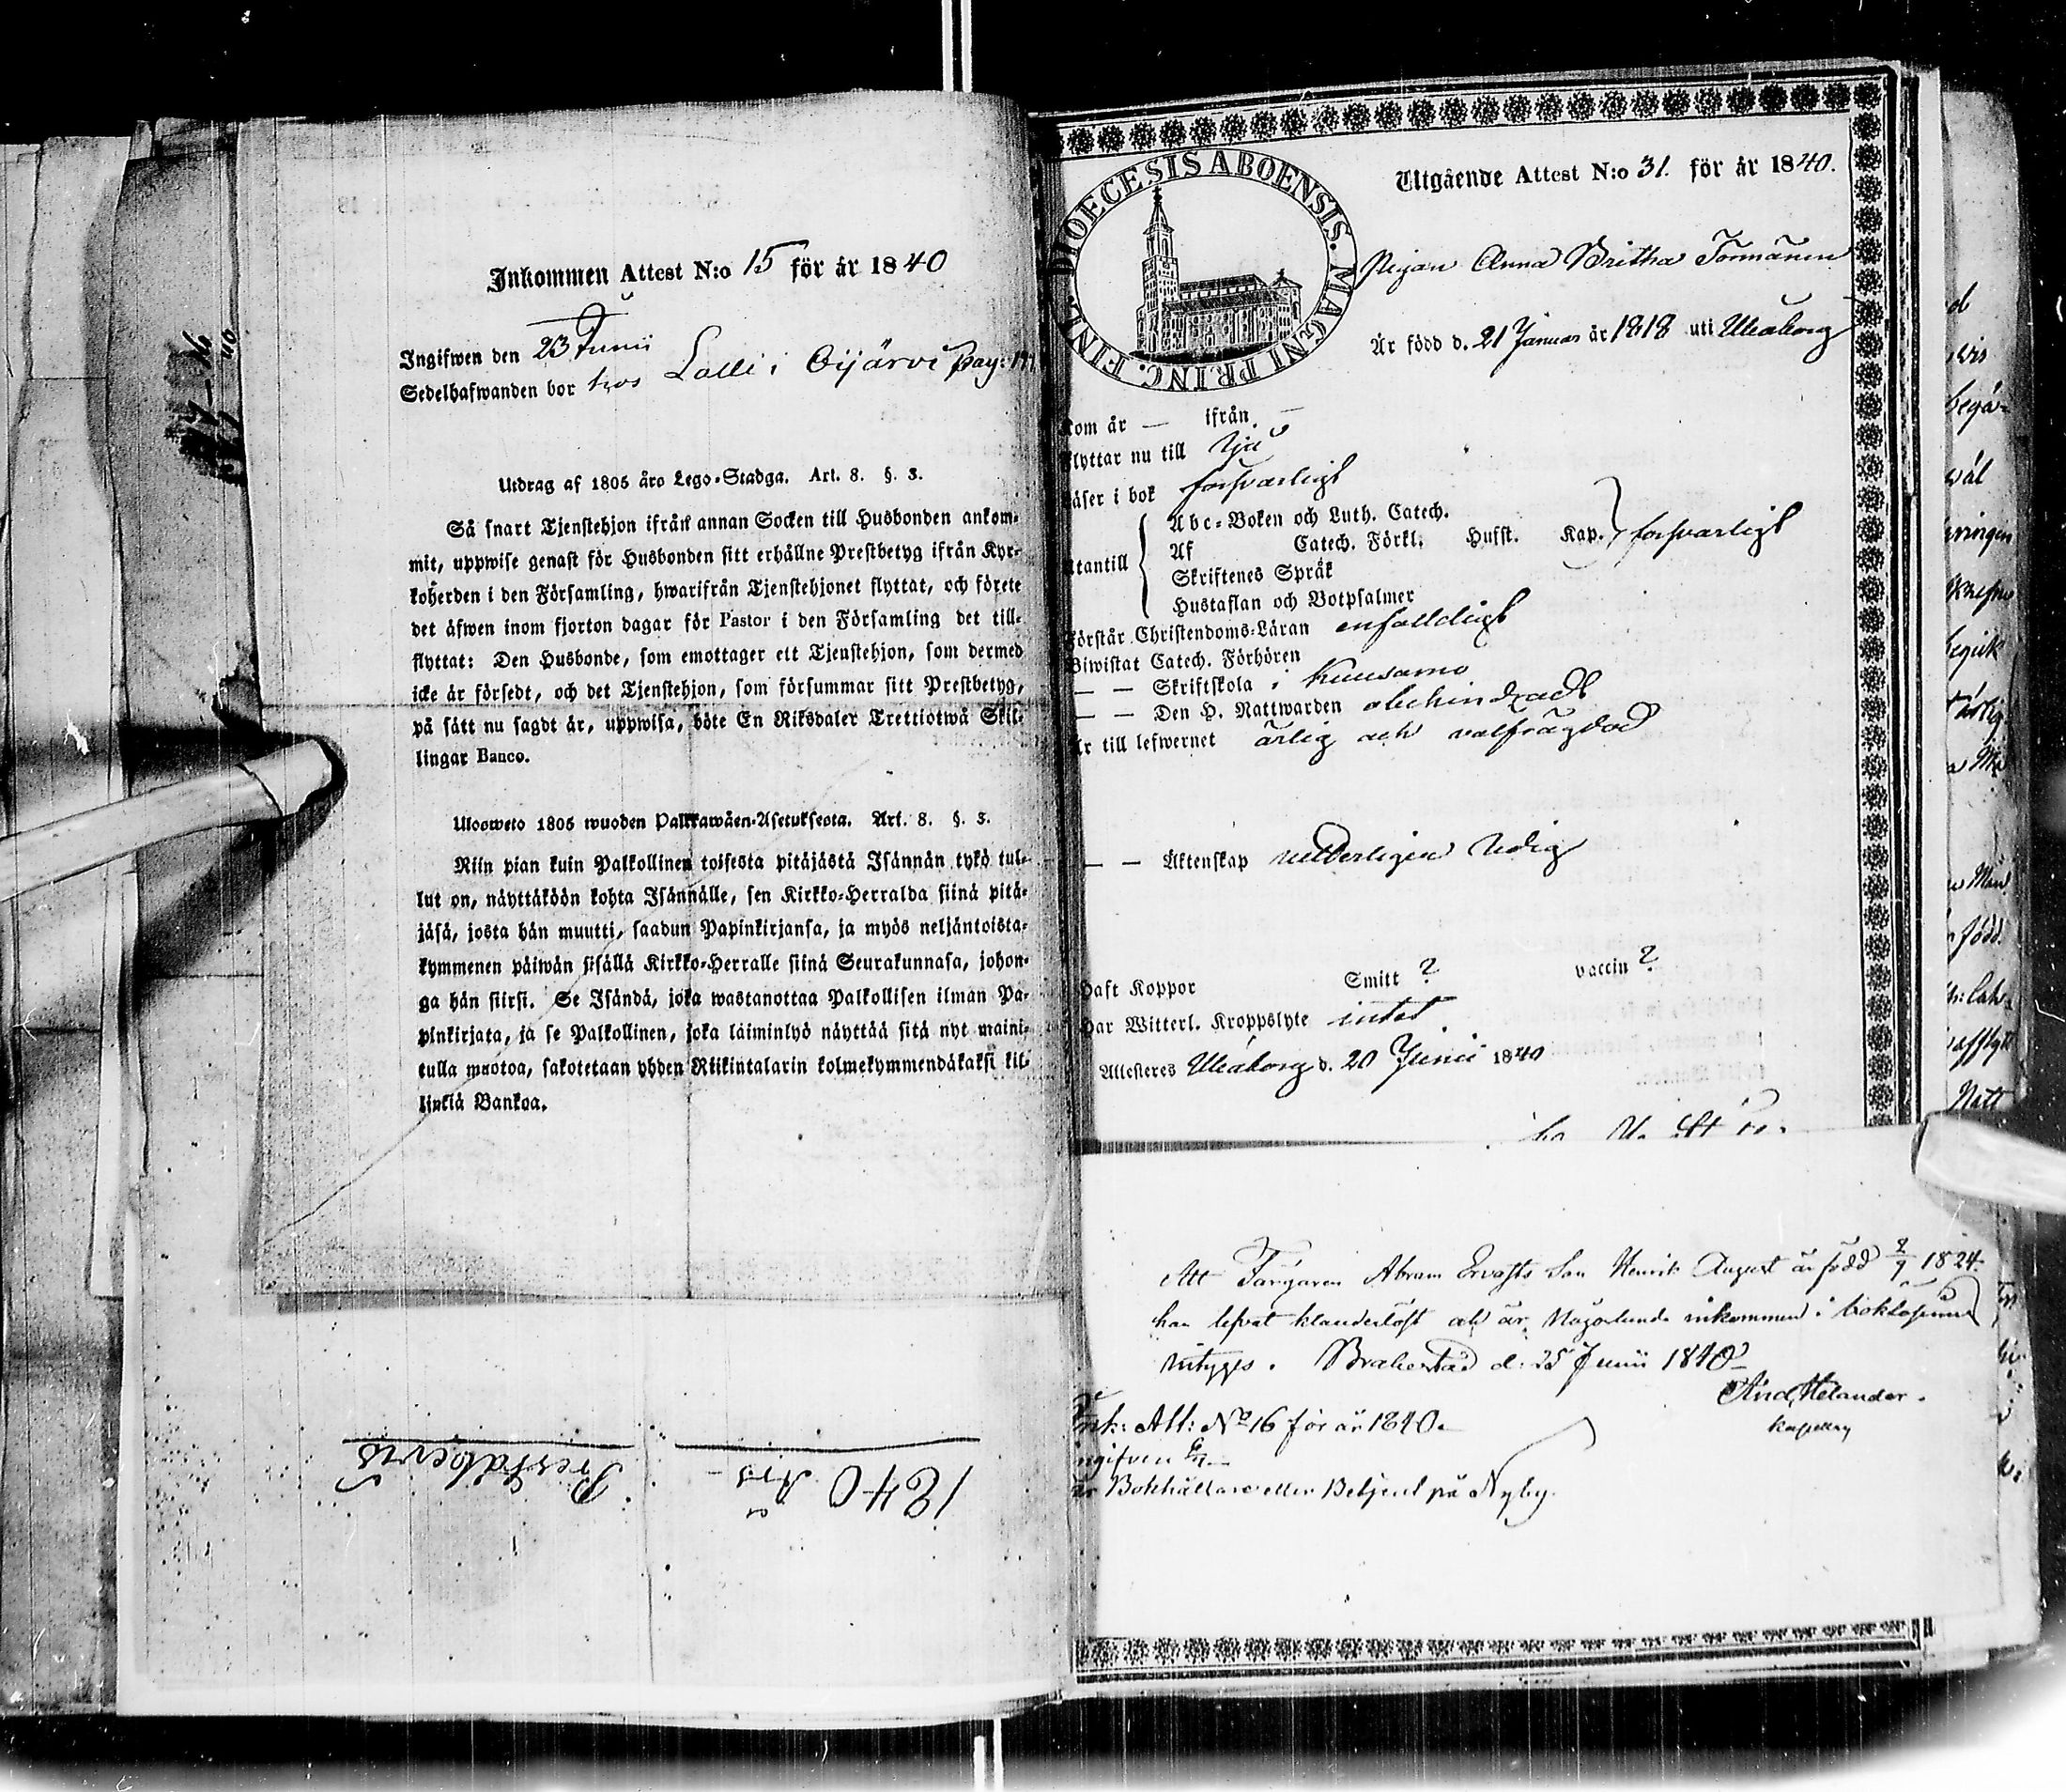 Inkommen Attest N:o 15 för år 1840
Ingifwen den 23 Junii
Sedelhafwanden bor hos Lalli i Oijärvi pag:
Utdrag af 1805 års Lego-Stadga. Art. 8. §. 3.
Så snart Tjenstehjon ifrån annan Socken till Husbonden ankom-
mit, uppwise genast för Husbonden sitt erhållne Prestbetyg ifrån Kyr-
koherden i den Församling, hwarifrån Tjenstehjonet flyttat, och förete
det äfwen inom fjorton dagar för Pastor i den Församling det till-
flyttat: Den Husbonde, som emottager ett Tjenstehjon, som dermed
icke är försedt, och det Tjenstehjon, som försummar sitt Prestbetyg,
på sätt nu sagdt är, uppwisa, böte En Riksdaler Trettiotwå Skil-
lingar Banco.
Ulosweto 1805 wuoden Palkkawäen-Asetuksesta. Art. 8. §. 3.
Niin pian kuin Palkollinen toisesta pitäjästä Isännän tykö tul-
lut on, näyttäköön kohta Isännälle, sen Kirkko-Herralda siinä pitä-
jäsä, josta hän muutti, saadun Papinkirjansa, ja myös neljäntoista-
kymmenen päiwän sisällä Kirkko-Herralle siinä Seurakunnasa, johon-
ga hän siirsi. Se Isändä, joka wastanottaa Palkollisen ilman Pa-
pinkirjata, ja se Palkollinen, joka laiminlyö näyttää sitä nyt maini-
tulla muotoa, sakotetaan yhden Riikintalarin kolmekymmendäkaksi kil-
linkiä Bankoa.
1840 Års
Prestabevis
DIOECESIS ABOENSIS. MAGNI PRINC. FINL.
Utgående Attest N:o 31. för år 1840.
Pigan Anna Britha Törmänen
Är född d. 21 Januar år 1818 uti Uleåborg
Kom år — ifrån —
Flyttar nu till Ijo
Läser i bok försvarligt
Utantill
Abc-Boken och Luth. Catech.
Af Catech. Förkl. Hufst. Kap. försvarligt
Skriftenes Språk
Hustaflan och Botpsalmer
Förstår Christendoms-Läran enfalldigt
Biwistat Catech. Förhören
— — Skriftskola i Kuusamo
— — Den H. Nattwarden obehindradt
Är till lefwernet ärlig och välfrägdad
— — Äktenskap vitterligen ledig
Haft Koppor Smitt ? vaccin ?
Har Witterl. Kroppslyte intet
Attesteras Uleåborg d. 20 Junii 1840
Att Färgaren Abram Ervasts Son Henrik August är född 2/9 1824.
har lefvat klanderlöst och är någorlunda inkommen i bokläsning
intygas. Brahestad d. 25 Junii 1840
And. Helander.
Kapellan
Ink: Att: No 16 för år 1840.
ingifven
är Bokhållare eller Betjent på Nyby.